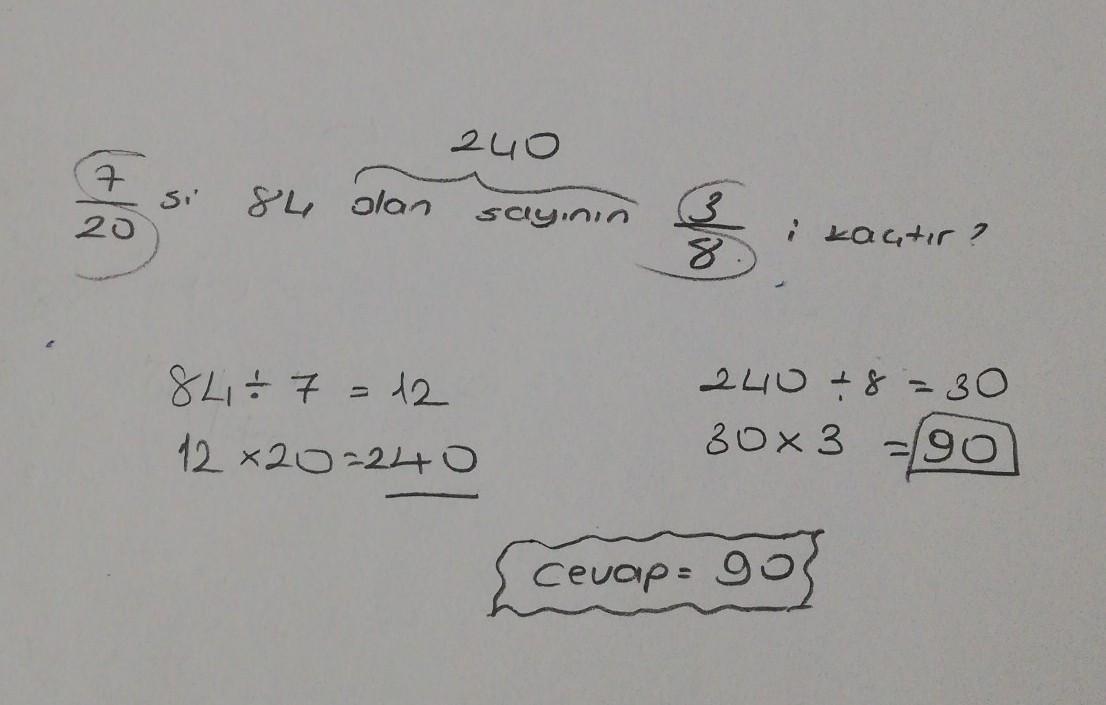 240
7/20 si 84 olan sayının 3/8 i kaçtır?
84 ÷ 7 = 12
12 × 20 = 240
240 ÷ 8 = 30
30 × 3 = 90
Cevap = 90